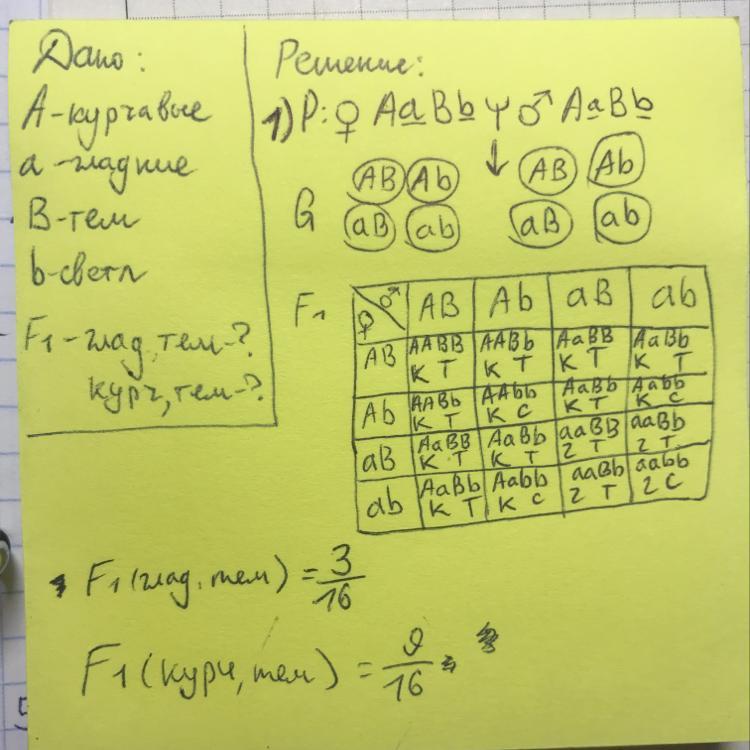 Дано:
А-курчавые
а-гладкие
В-тем
b-светл
F1-глад,тем-?
курч,тем-?
Решение:
1)P: ♀ AaBb Ψ ♂ AaBb
↓
G AB Ab AB Ab
aB ab aB ab
F1 ♀ ♂ AB Ab aB ab
AB AABB AABb AaBB AaBb
К Т К Т К Т К Т
Ab AABb AAbb AaBb Aabb
К Т К С К Т К С
aB AaBB AaBb aaBB aaBb
К Т К Т г Т г Т
ab AaBb Aabb aaBb aabb
К Т К С г Т г С
F1(глад,тем) = 3/16
F1(курч,тем) = 9/16